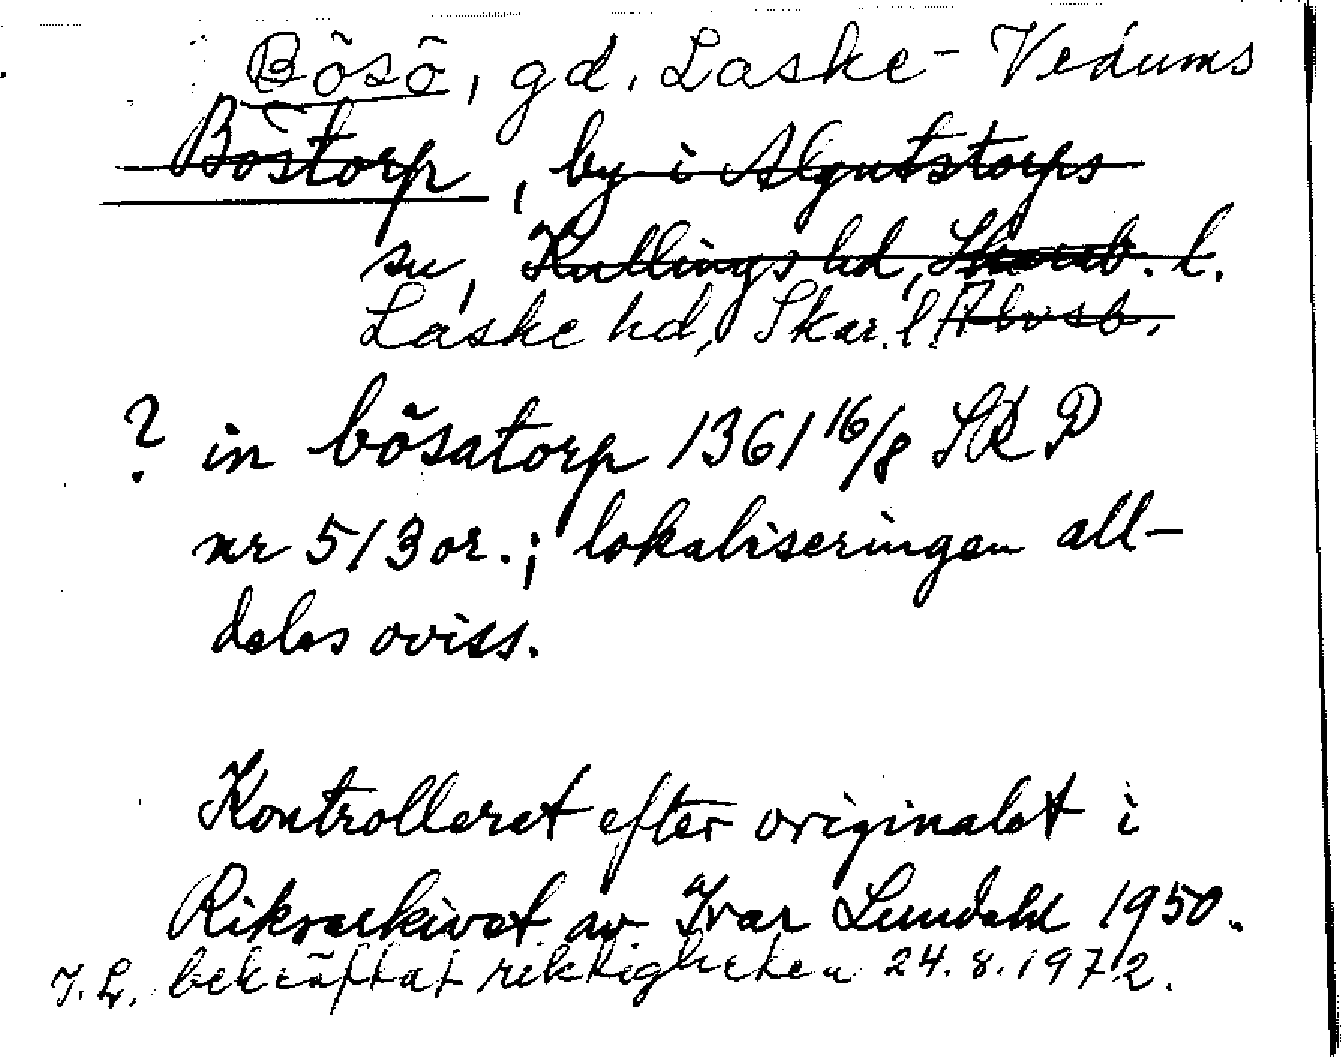 Bösö, gd. Laske-Vedums
Böstorp, by i Algutstorps
sn, Kullings hd, Skarab. l.
Laske hd, Skar. l. Älvsb.
? in bösatorp 1361 16/8 SRP
nr 513 or.; lokaliseringen all-
deles oviss.
Kontrollerat efter originalet i
Riksarkivet av Ivar Lundahl 1950.
I. L. bekräftat riktigheten 24.8.1972.